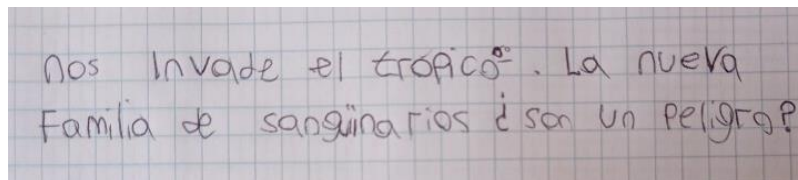 nos invade el tropico. La nueva
Familia de sangüinarios ¿son un peligro?